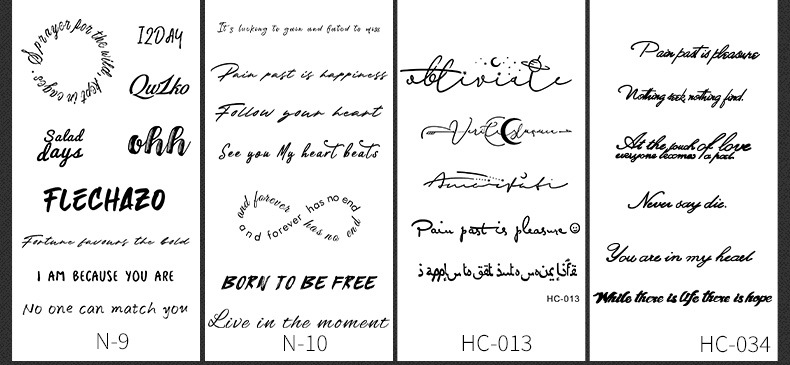 Sprayer for the wild, kept in cages.
I2DAY
QwZko
Salad
days
ohh
FLECHAZO
Fortune favours the bold
I AM BECAUSE YOU ARE
No one can match you
N-9
It's lucking to gain and fated to miss
Pain past is happiness
Follow your heart
See you My heart beats
and forever has no end
and forever has no end
BORN TO BE FREE
Live in the moment
N-10
obliviate
Amor Fati
Pain past is pleasure
HC-013
HC-013
Pain past is pleasure
Nothing seek, nothing find.
At the touch of love
everyone becomes a poet.
Never say die.
You are in my heart
While there is life there is hope
HC-034